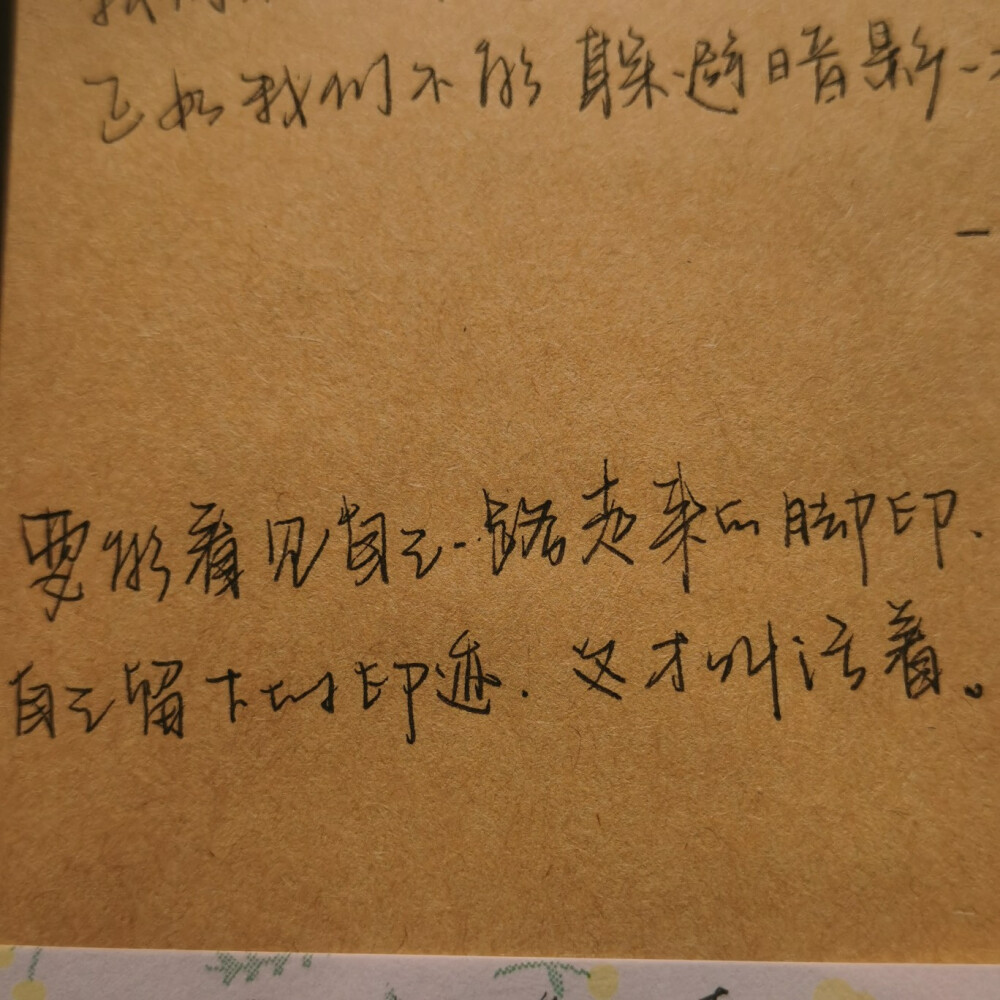 正如我们不能躲避暗影一
要能看见自己一路走来的脚印、
自己留下的印迹.这才叫活着。